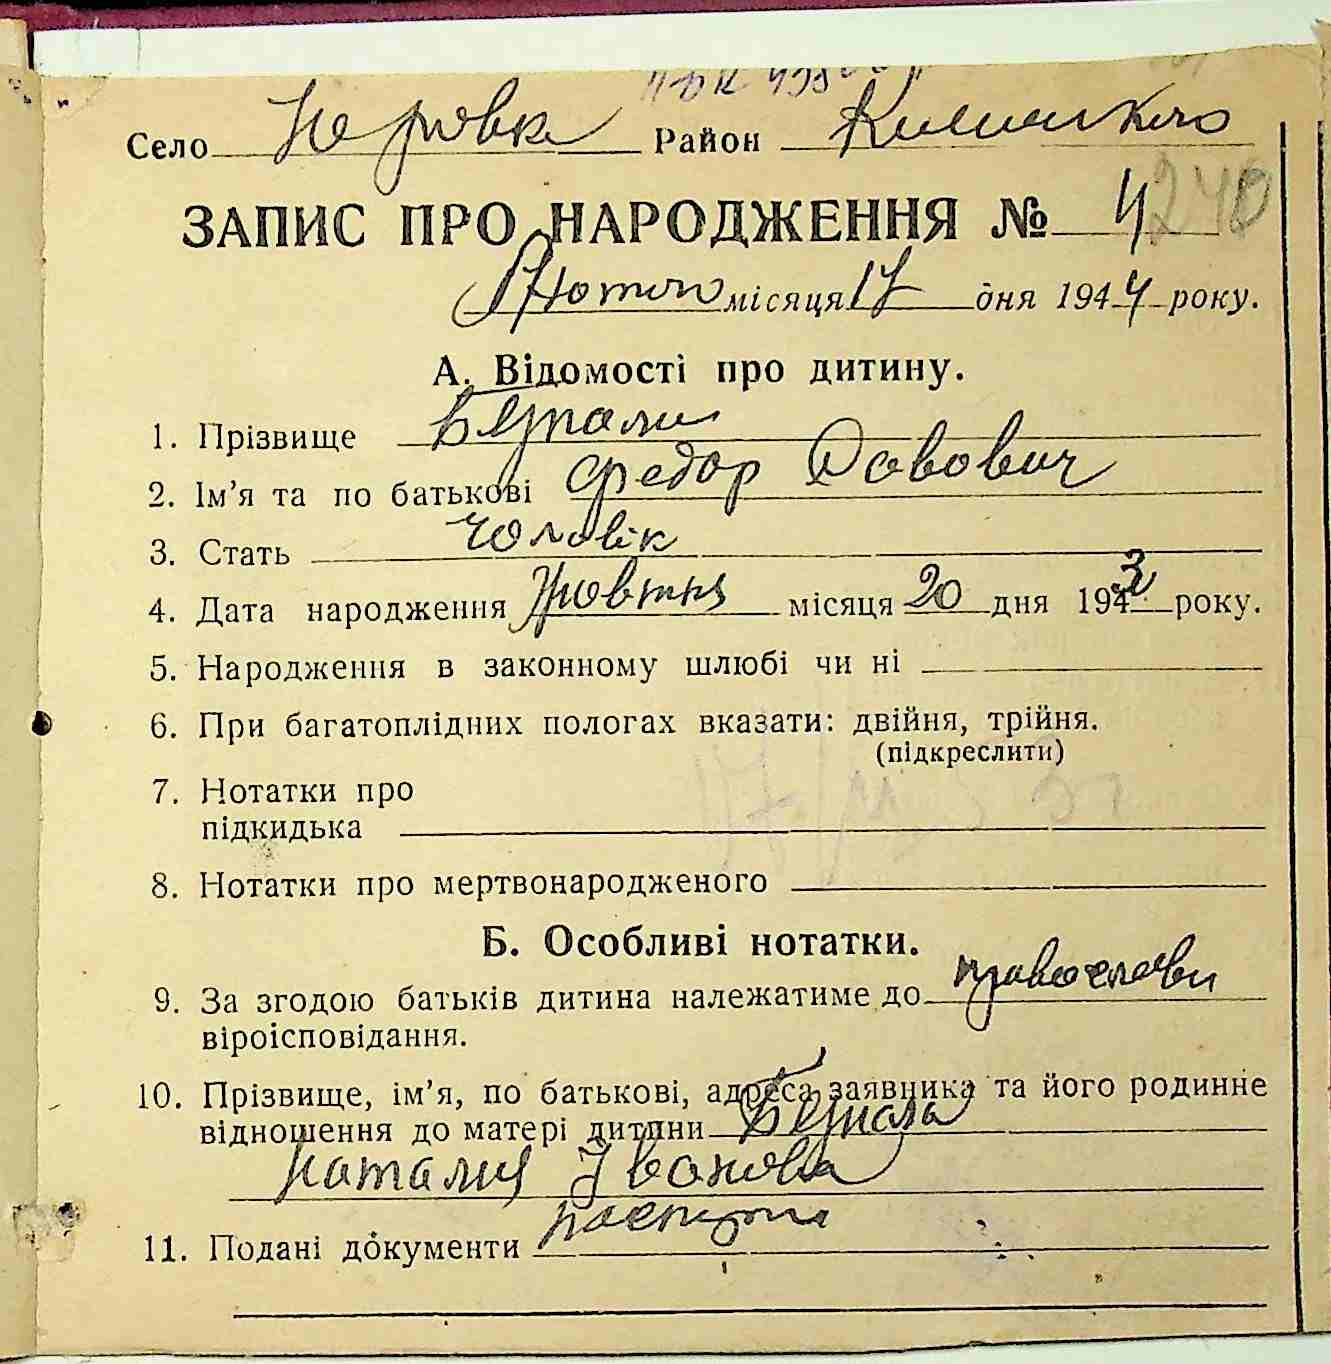 Село Юрівка Район
ЗАПИС ПРО НАРОДЖЕННЯ № 4 240
Лютого місяця 17 дня 1944 року.
А. Відомості про дитину.
1. Прізвище
2. Ім'я та по батькові Федор Савович
3. Стать чоловік
4. Дата народження Жовтня місяця 20 дня 1943 року.
5. Народження в законному шлюбі чи ні
6. При багатоплідних пологах вказати: двійня, трійня.
(підкреслити)
7. Нотатки про
підкидька
8. Нотатки про мертвонародженого
Б. Особливі нотатки.
9. За згодою батьків дитина належатиме до православн
віроісповідання.
10. Прізвище, ім'я, по батькові, адреса заявника та його родинне
відношення до матері дитини
Наталия Іванова
11. Подані документи паспорта